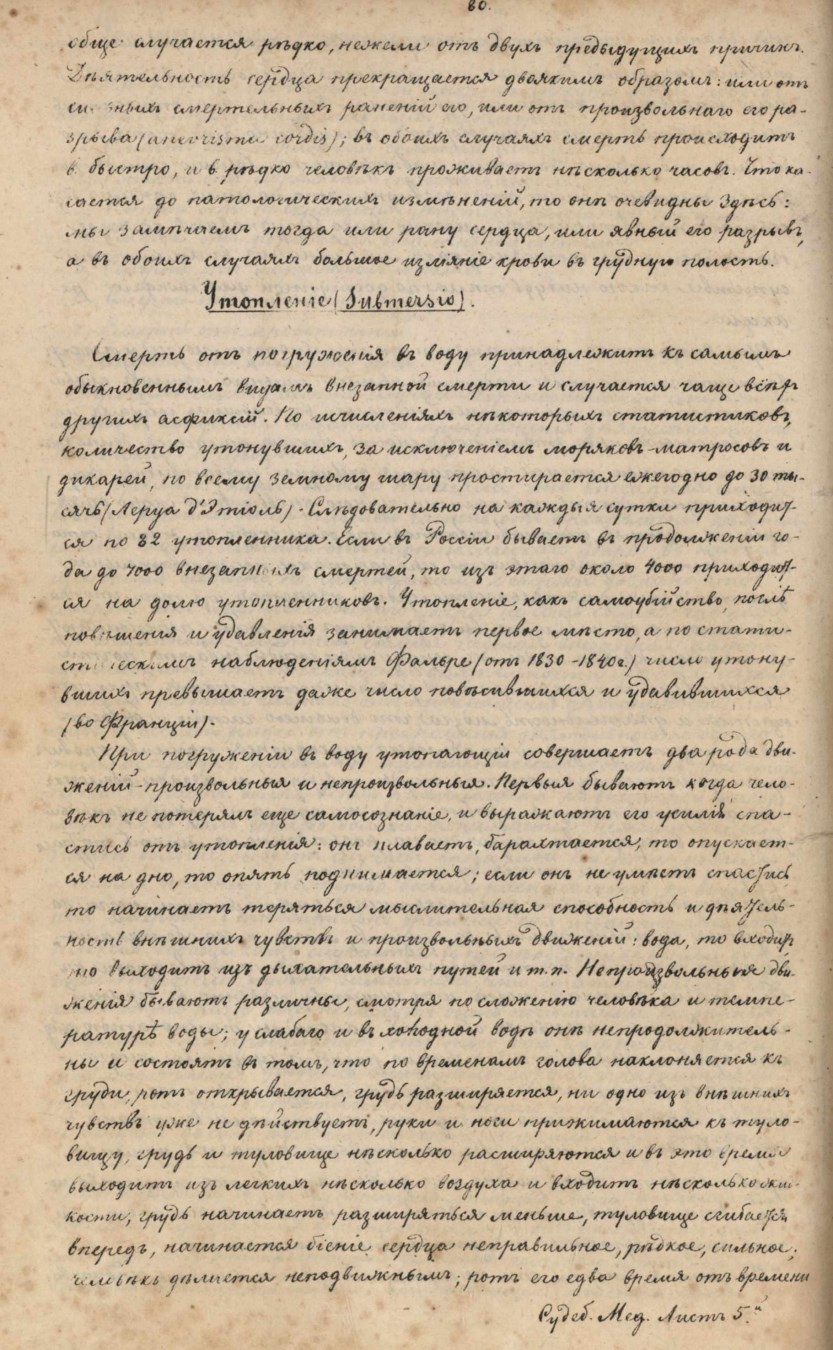 80.
обще случается рѣдко, нежели отъ двухъ предыдущихъ причинъ.
Дѣятельность сердца прекращается двоякимъ образомъ: или отъ
сильныхъ смертельныхъ раненій его, или отъ произвольнаго его ра-
зрыва (aneorisma cordis); въ обоихъ случаяхъ смерть происходитъ
быстро, и рѣдко человѣкъ проживаетъ нѣсколько часовъ. Что ка-
сается до патологическихъ измѣненій, то онѣ очевидны здѣсь:
мы замѣчаемъ тогда или рану сердца, или явный его разрывъ,
а въ обоихъ случаяхъ большое изліяніе крови въ грудную полость.
Утопленіе (Submersio).
Смерть отъ погруженія въ воду принадлежитъ къ самымъ
обыкновеннымъ видамъ внезапной смерти и случается чаще всѣхъ
другихъ асфиксій. По исчисленіяхъ нѣкоторыхъ статистиковъ,
количество утонувшихъ, за исключеніемъ моряковъ-матросовъ и
дикарей, по всему земному шару простирается ежегодно до 30 ты-
сячъ (Леруа д'Этіоль). Слѣдовательно на каждыя сутки приходит-
ся по 82 утопленника. Если въ Россіи бываетъ въ продолженіи го-
да до 7000 внезапныхъ смертей, то изъ этаго около 4000 приходит-
ся на долю утопленниковъ. Утопленіе, какъ самоубійство, послѣ
повѣшенія и удавленія занимаетъ первое мѣсто, а по стати-
стическимъ наблюденіямъ Фальре (отъ 1830-1840г.) число утону-
вшихъ превышаетъ даже число повѣсившихся и удавившихся
(во Франціи).
При погруженіи въ воду утопающій совершаетъ два рода дви-
женій - произвольныя и непроизвольныя. Первыя бываютъ когда чело-
вѣкъ не потерялъ еще самосознаніе, и выражаютъ его усилія спа-
стись отъ утопленія: онъ плаваетъ, барахтается, то опускает-
ся на дно, то опять поднимается; если онъ не умѣетъ спастись
то начинаетъ теряться мыслительная способность и дѣятель-
ность внѣшнихъ чувствъ и произвольныхъ движеній: вода, то входитъ
то выходитъ изъ дыхательныхъ путей и т.п. Непроизвольныя дви-
женія бываютъ различны, смотря по сложенію человѣка и темпе-
ратурѣ воды; у слабаго и въ холодной водѣ онѣ непродолжитель-
ны и состоятъ въ томъ, что по временамъ голова наклоняется къ
груди, ротъ открывается, грудь разширяется, ни одно изъ внѣшнихъ
чувствъ уже не дѣйствуетъ, руки и ноги прижимаются къ туло-
вищу, грудь и туловище нѣсколько расширяются и въ это время
выходитъ изъ легкихъ нѣсколько воздуха и входитъ нѣсколько жид-
кости; грудь начинаетъ разширяться меньше, туловище сгибается
впередъ, начинается біеніе сердца неправильное, рѣдкое, сильное;
человѣкъ дѣлается неподвижнымъ; ротъ его едва время отъ времени
Судеб. Мед. Листъ 5.й